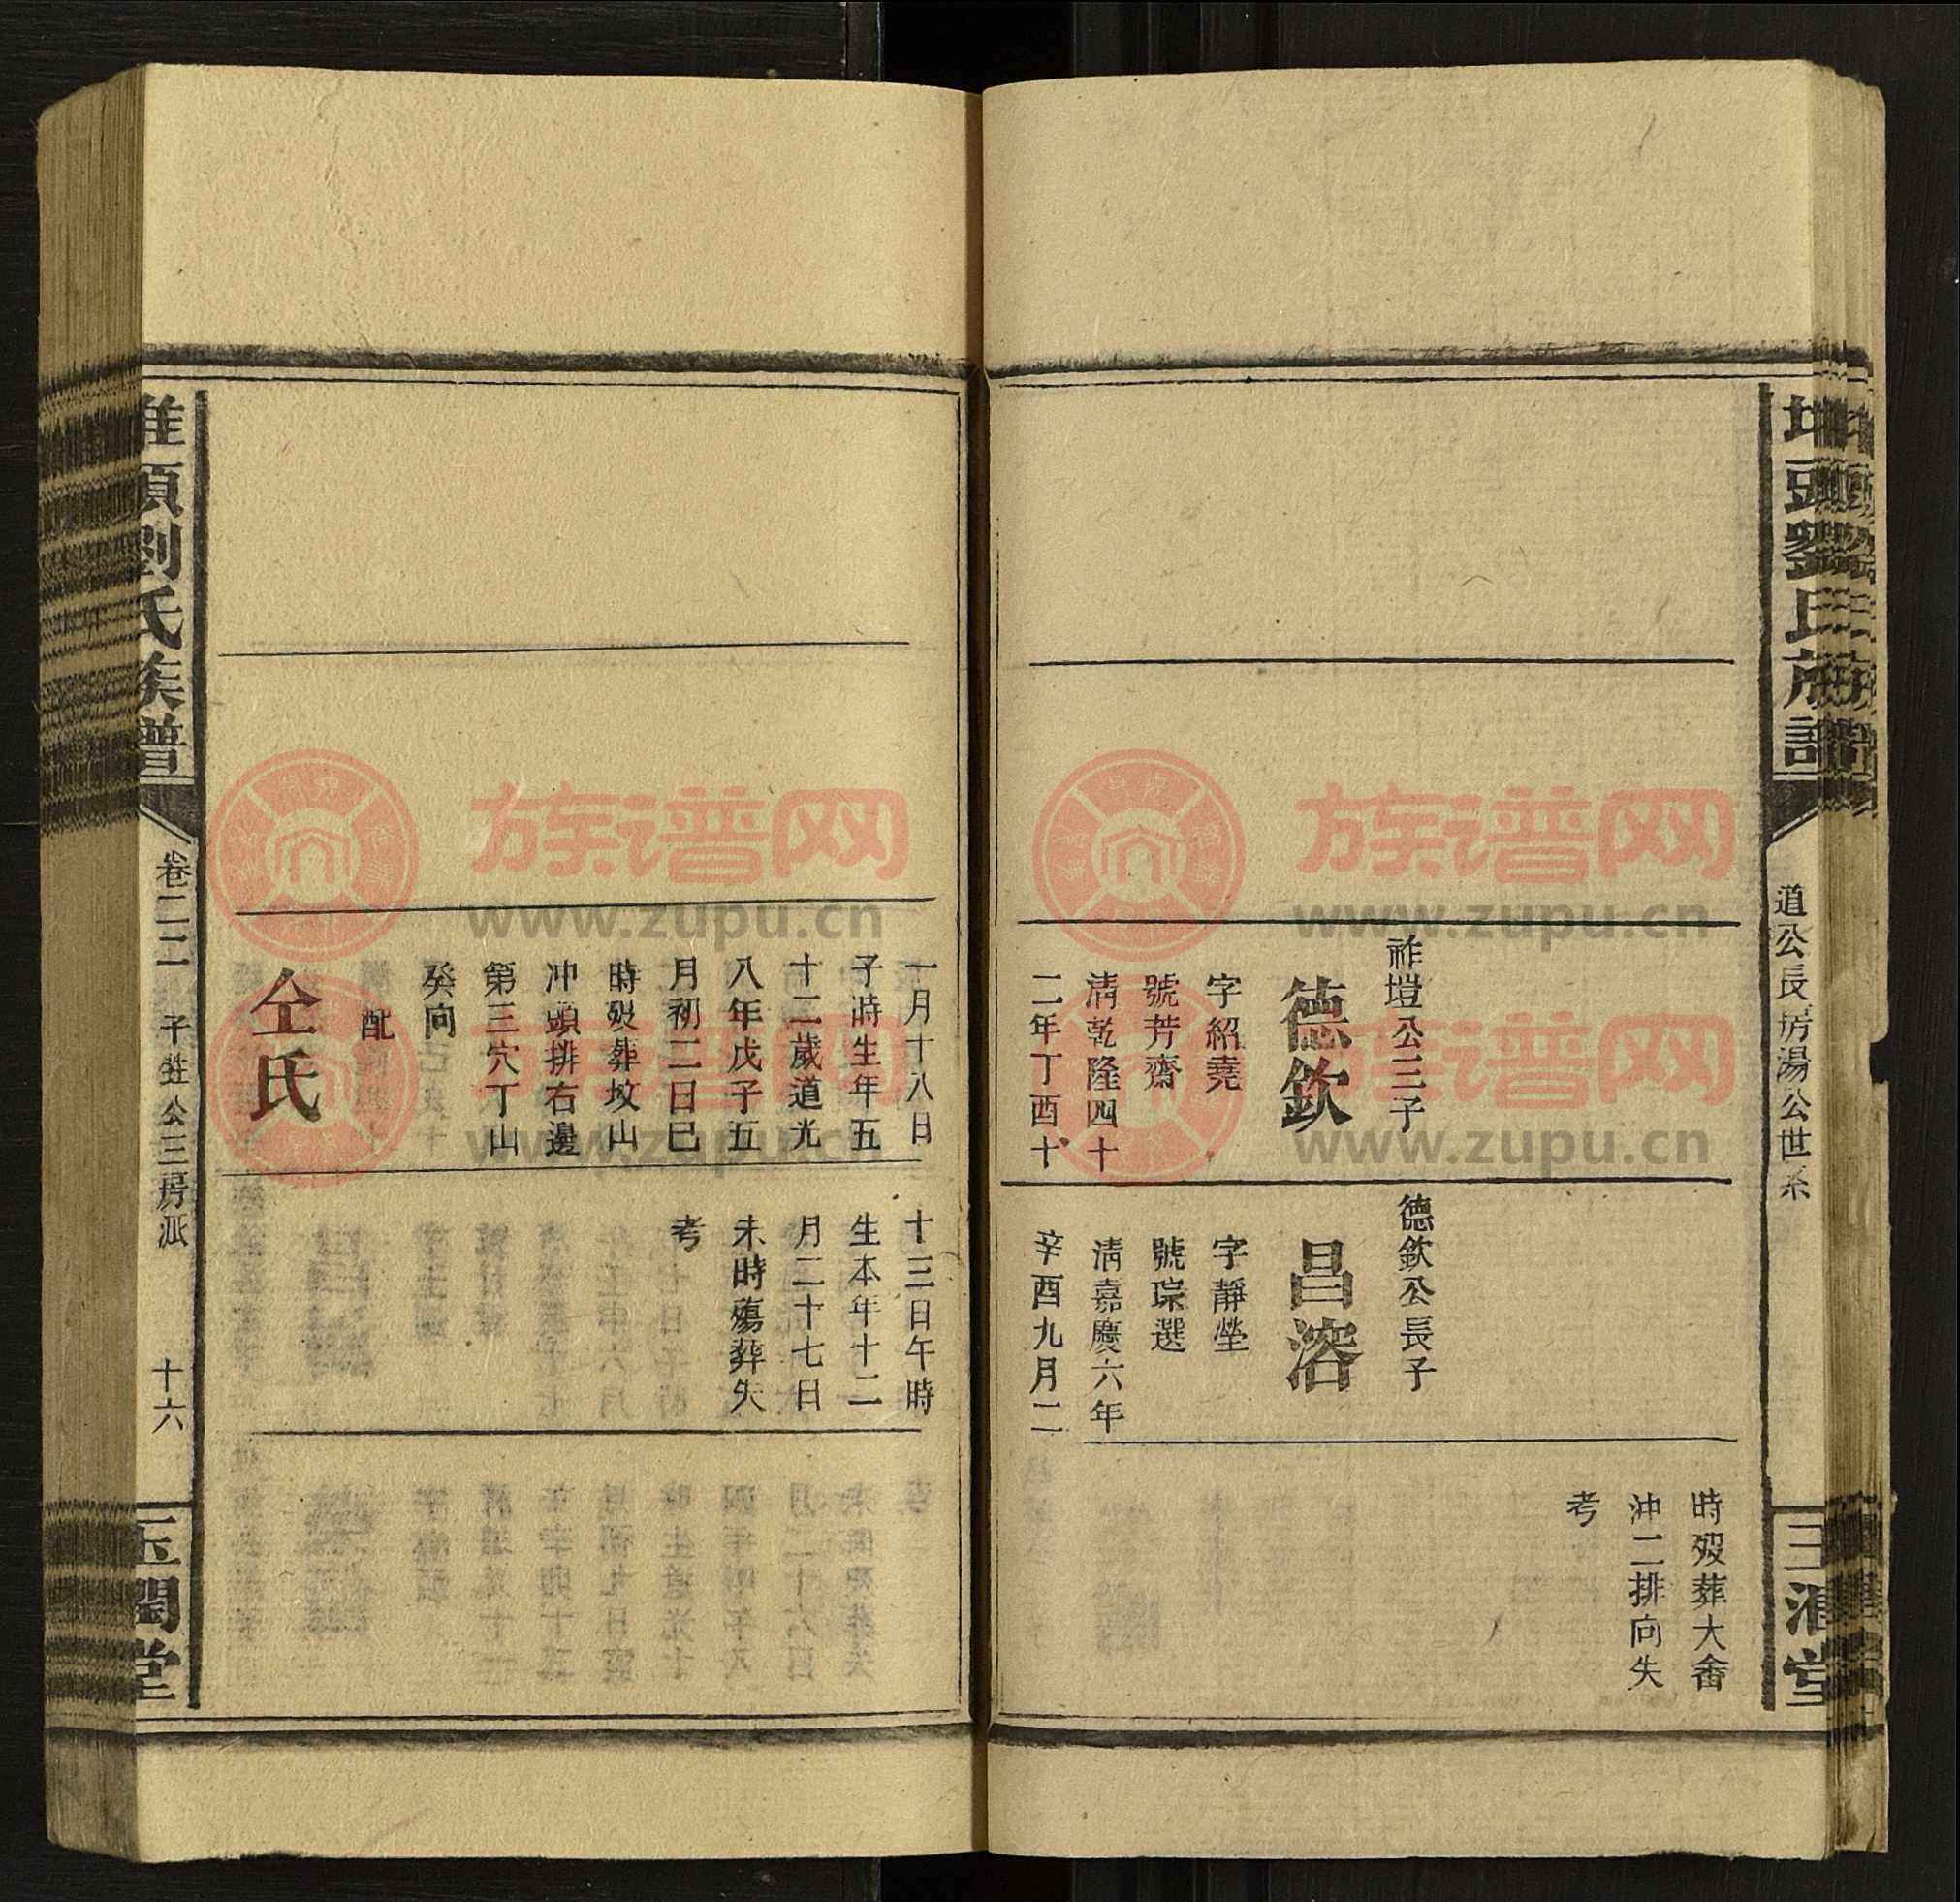 頭劉氏族譜
道公長房湯公世系
堂
祚塏公三子
德欽
字紹堯
號芳齋
清乾隆四十
二年丁酉十
德欽公長子
昌溶
字靜瑩
號琮選
清嘉慶六年
辛酉九月二
時歿葬大畬
沖二排向失
考
一月十八日
子時生年五
十二歲道光
八年戊子五
月初二日巳
時歿葬坟山
冲頭排右邊
第三穴丁山
癸向
配
仝氏
十三日午時
生本年十二
月二十七日
未時殤葬失
考
頭劉氏族譜
卷二二
公三房派
十六
堂
族谱网
www.zupu.cn
族谱网
www.zupu.cn
族谱网
www.zupu.cn
族谱网
www.zupu.cn